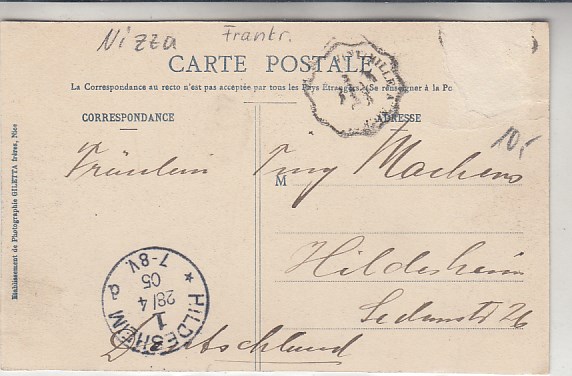 Nizza Frankr.
CARTE POSTALE
La Correspondance au recto n'est pas acceptée par tous les Pays Étrangers. (Se renseigner à la Po
CORRESPONDANCE
ADRESSE
10,-
Fräulein Machens
M
Hildesheim
Sedanstr 26
Deutschland
HILDESHEIM
1
28/4
05
7-8V.
Etablissement de Photographie GILETTA frères, Nice